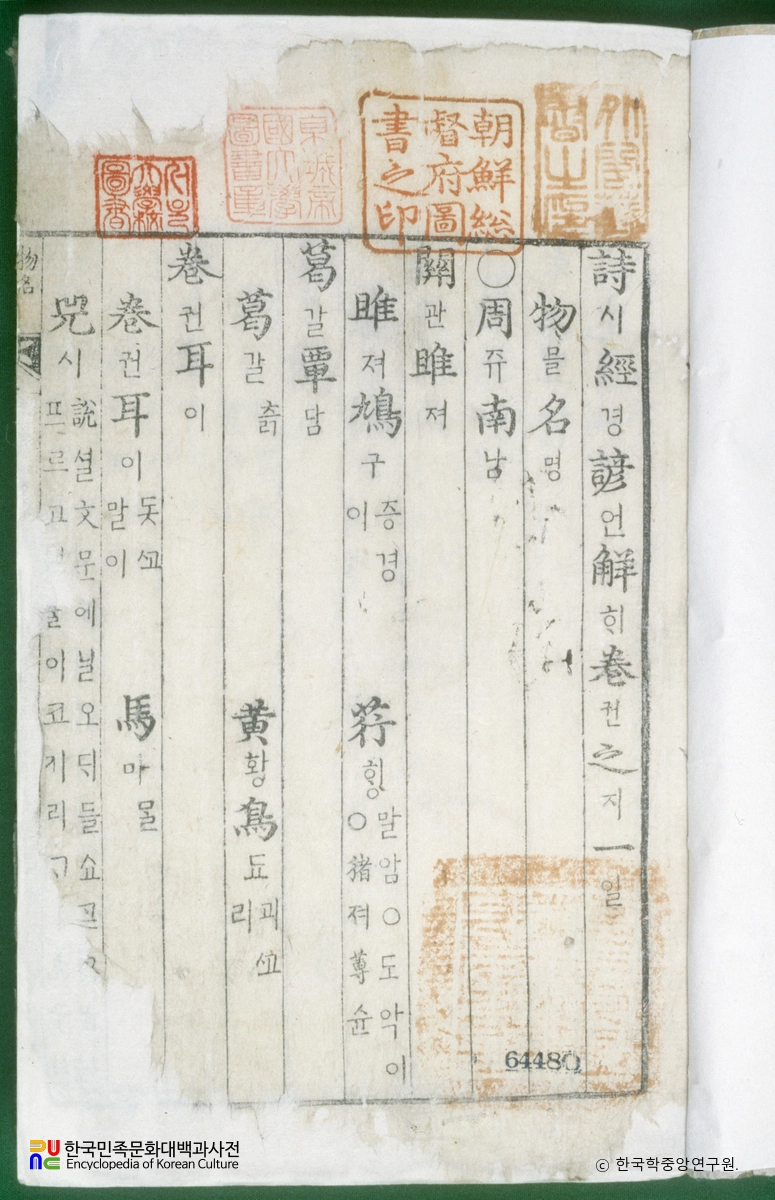 朝鮮総督府圖書之印
京城帝國大學圖書章
서울大學校圖書
詩시經경諺언解ᄒᆡ卷권之지一일
物믈名명
○周쥬南남
關관雎져
雎져鳩구 증경이 荇ᄒᆡᆼ 말암○도악이○猪져蓴슌
葛갈覃담
葛갈 츩 黃황鳥됴 괴ᄭᅩ리
卷권耳이
卷권耳이 돗ᄭᅩ말이 馬마 ᄆᆞᆯ
兕시 說셜文문에닐오ᄃᆡ들쇼 프르고 이코기리
物名
64480
한국민족문화대백과사전
Encyclopedia of Korean Culture
© 한국학중앙연구원.